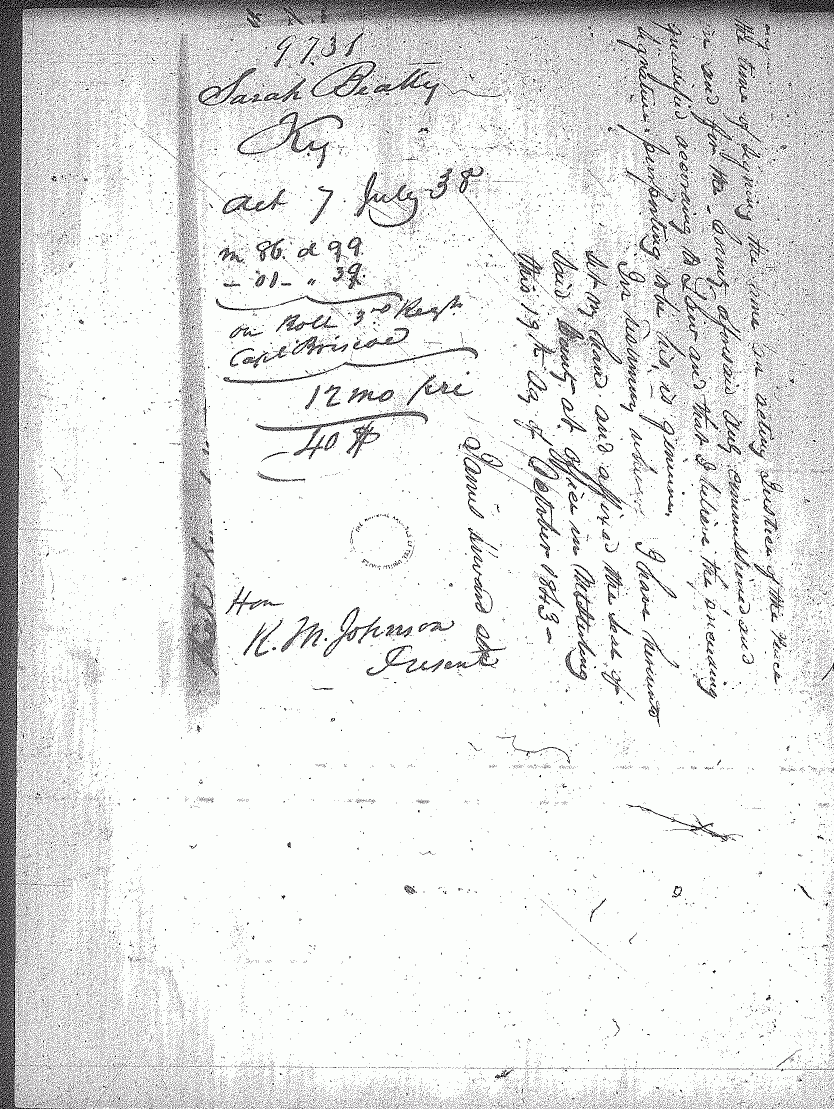 9731
Sarah Beatty
Ky
Act 7 July 38
m 86. d 99
on Roll 3rd Regt
Capt Briscoe
12 mo pri
40 $
Hon
R. M. Johnson
Present
the time of signing the same an acting Justice of the Peace
in and for the County aforesaid duly commissioned and
qualified according to Law and that I believe the
signature purporting to be his, is genuine.
In testimony whereof I have hereunto
set my hand and affixed the seal of
said County at office in
this 19th day of October 1843 -
James Howard